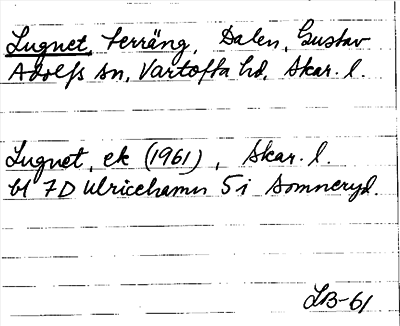 Lugnet, terräng, Dalen, Gustav
Adolfs sn, Vartofta hd, Skar. l.
Lugnet, ek (1961), Skar. l.
bl 7D Ulricehamn 5 i Somneryd.
LB-61